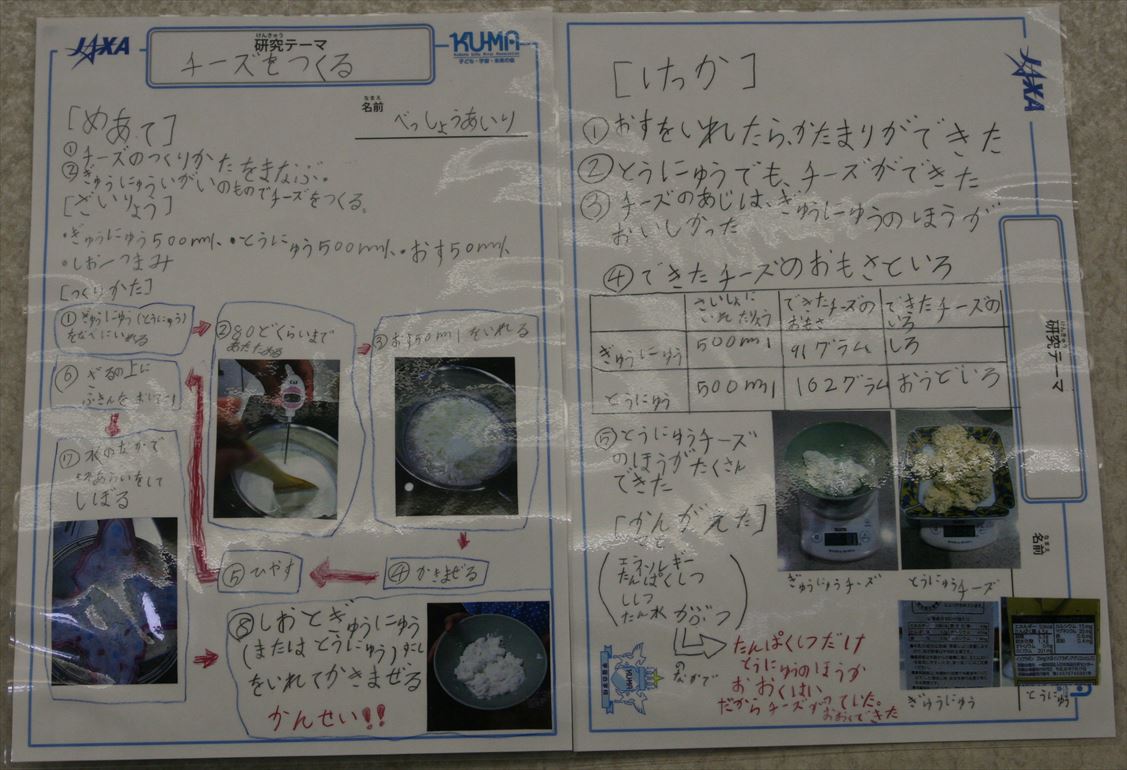 JAXA
けんきゅう
研究テーマ
チーズをつくる
KU-MA
子ども・宇宙・未来の会
なまえ
名前
べっしょうあいり
[めあて]
①チーズのつくりかたをまなぶ。
②ぎゅうにゅういがいのものでチーズをつくる。
[ざいりょう]
・ぎゅうにゅう500ml、・とうにゅう500ml、・おす50ml、
・しお一つまみ
[つくりかた]
①ぎゅうにゅう(とうにゅう)
をなべにいれる
②80どくらいまで
あたためる
③おす50mlをいれる
④かきまぜる
⑤ひやす
⑥ざるの上に
ふきんを
⑦水のなかで
あらいをして
しぼる
⑧しおとぎゅうにゅう
(またはとうにゅう)少し
をいれてかきまぜる
かんせい!!
JAXA
[けっか]
①おすをいれたら、かたまりができた
②とうにゅうでも、チーズができた
③チーズのあじは、ぎゅうにゅうのほうが
おいしかった
④できたチーズのおもさといろ
さいしょに
いれたりょう
できたチーズの
おもさ
できたチーズの
いろ
ぎゅうにゅう
500ml
91グラム
しろ
とうにゅう
500ml
162グラム
おうどいろ
⑤とうにゅうチーズ
のほうがたくさん
できた
ぎゅうにゅうチーズ
とうにゅうチーズ
[かんがえたこと]
(エネルルギー
たんぱくしつ
ししつ
たん水かぶつ)
のなかで
たんぱくしつだけ
とうにゅうのほうが
おおくはい
っていた。
だからチーズが
おおくできた
ぎゅうにゅう
とうにゅう
けんきゅう
研究テーマ
なまえ
名前
KU-MA